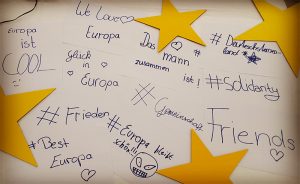 We Love
Europa
Europa
ist
COOL
Glück
in
Europa
Das mann
zusammen ist!
#Solidarity
#Frieden
#Gemeinschaft
Friends
#Best
Europa
#Europa bleibt
schön!!!